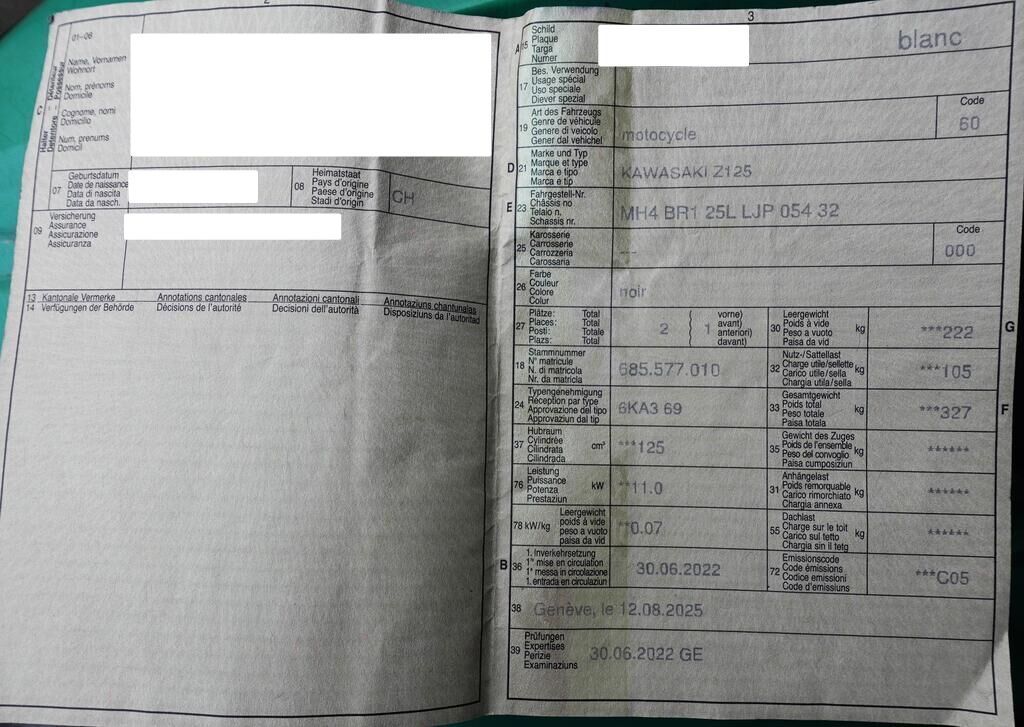 2
01-06
Halter Détenteurs Detentore Possessur
C
Name, Vornamen
Wohnort
Nom, prénoms
Domicile
Cognome, nomi
Domicilio
Num, prenums
Domicil
07
Geburtsdatum
Date de naissance
Data di nascita
Data da nasch.
08
Heimatstaat
Pays d'origine
Paese d'origine
Stadi d'origin
CH
09
Versicherung
Assurance
Assicurazione
Assicuranza
13 Kantonale Vermerke Annotations cantonales Annotazioni cantonali Annotaziuns chantunalas
14 Verfügungen der Behörde Décisions de l'autorité Decisioni dell'autorità Disposiziuns da l'autoritad
3
A 15
Schild
Plaque
Targa
Numer
blanc
17
Bes. Verwendung
Usage spécial
Uso speciale
Diever spezial
19
Art des Fahrzeugs
Genre de véhicule
Genere di veicolo
Gener dal vehichel
motocycle
Code
60
D 21
Marke und Typ
Marque et type
Marca e tipo
Marca e tip
KAWASAKI Z125
E 23
Fahrgestell-Nr.
Châssis no
Telaio n.
Schassis nr.
MH4 BR1 25L LJP 054 32
25
Karosserie
Carrosserie
Carrozzeria
Carossaria
---
Code
000
26
Farbe
Couleur
Colore
Colur
noir
27
Plätze: Total
Places: Total
Posti: Totale
Plazs: Total
2 ( 1
vorne)
avant)
anteriori)
davant)
30
Leergewicht
Poids à vide
Peso a vuoto
Paisa da vid
kg
***222
G
18
Stammnummer
N° matricule
N. di matricola
Nr. da matricla
685.577.010
32
Nutz-/Sattellast
Charge utile/sellette
Carico utile/sella
Chargia utila/sella
kg
***105
24
Typengenehmigung
Réception par type
Approvazione del tipo
Approvaziun dal tip
6KA3 69
33
Gesamtgewicht
Poids total
Peso totale
Paisa totala
kg
***327
F
37
Hubraum
Cylindrée
Cilindrata
Cilindrada
cm³
***125
35
Gewicht des Zuges
Poids de l'ensemble
Peso del convoglio
Paisa cumposiziun
kg
******
76
Leistung
Puissance
Potenza
Prestaziun
kW
**11.0
31
Anhängelast
Poids remorquable
Carico rimorchiato
Chargia annexa
kg
******
78 kW/kg
Leergewicht
poids à vide
peso a vuoto
paisa da vid
**0.07
55
Dachlast
Charge sur le toit
Carico sul tetto
Chargia sin il tetg
kg
******
B 36
1. Inverkehrsetzung
1re mise en circulation
1a messa in circolazione
1. entrada en circulaziun
30.06.2022
72
Emissionscode
Code émissions
Codice emissioni
Code d'emissiuns
***C05
38 Genève, le 12.08.2025
39
Prüfungen
Expertises
Perizie
Examinaziuns
30.06.2022 GE